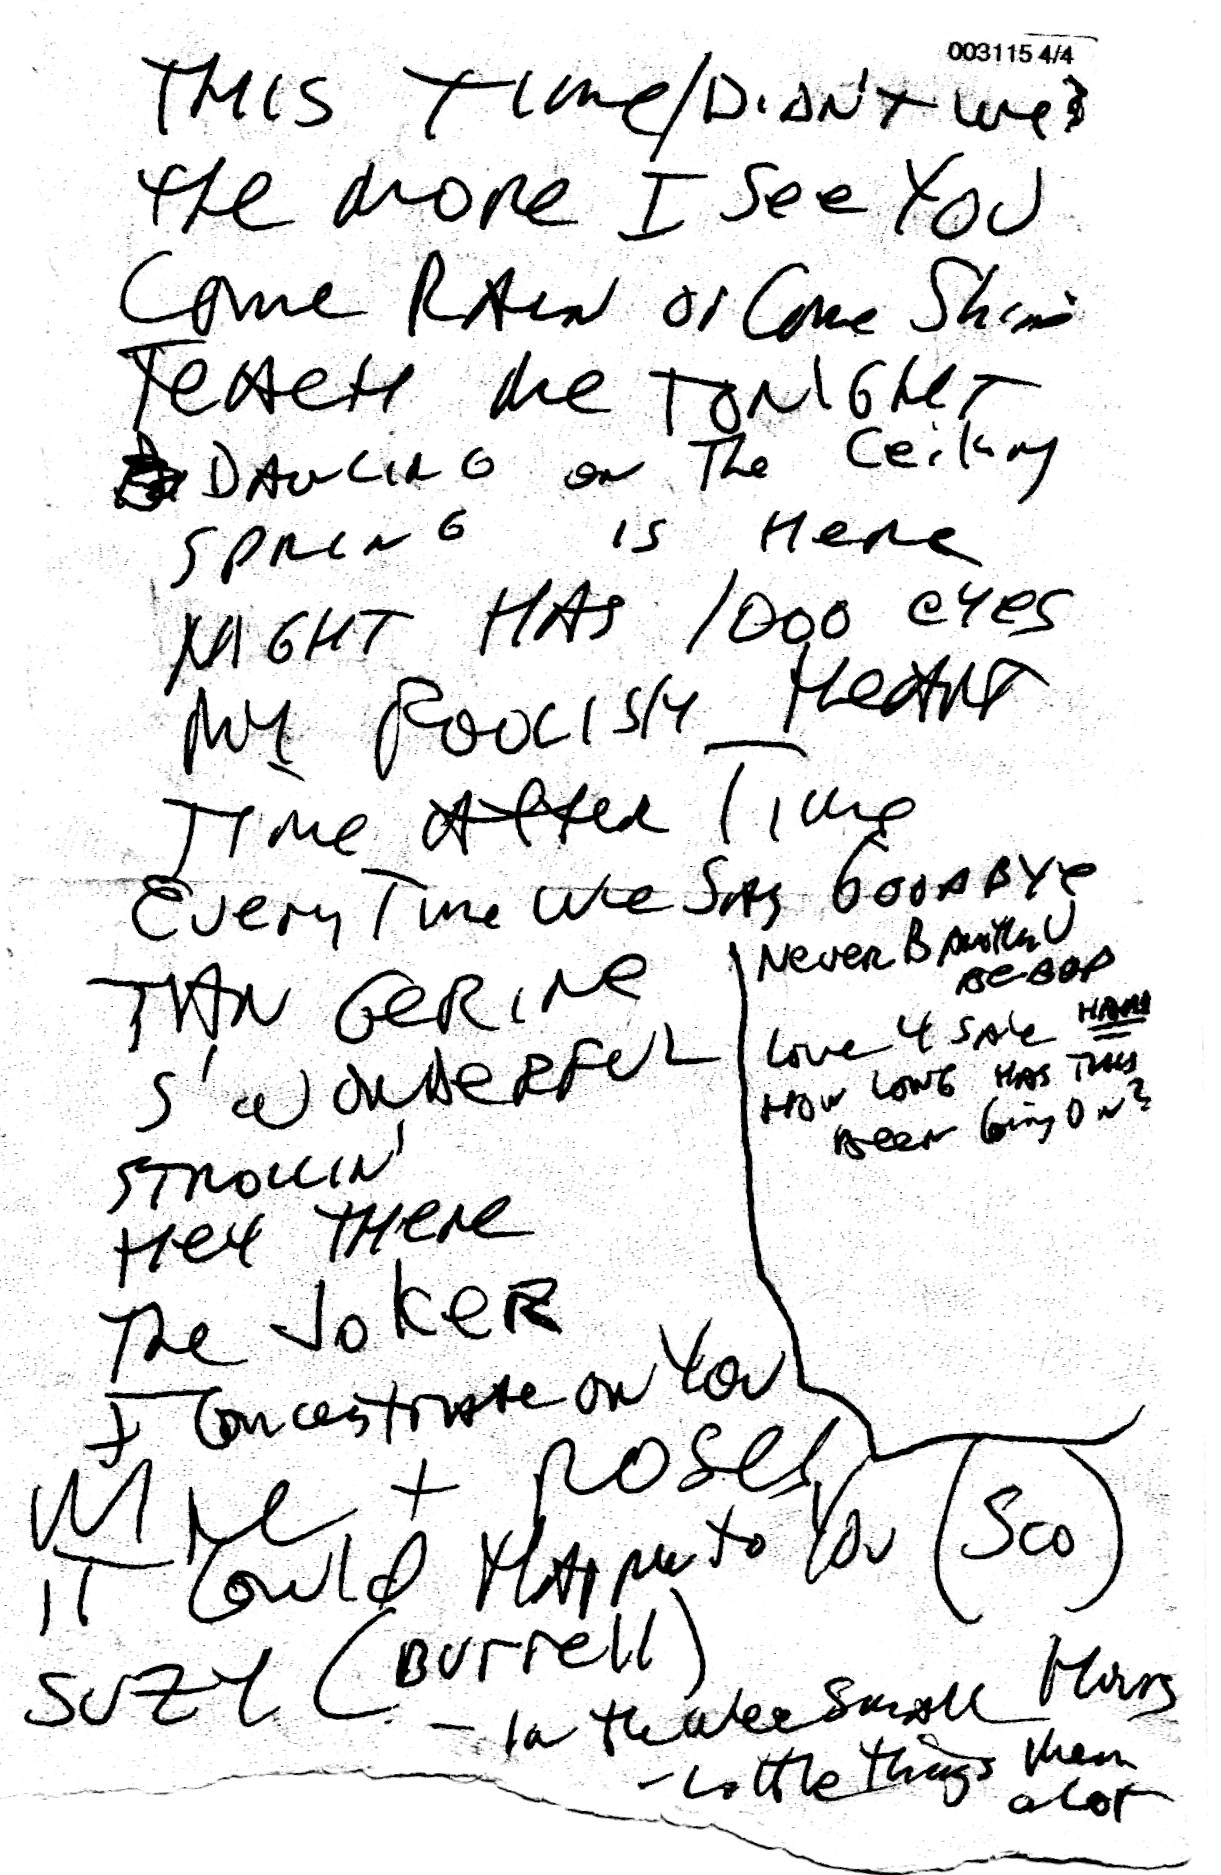 003115 4/4
THIS TIME/DIDN'T We?
THE MORE I See YOU
Come RAIN or Come Shine
TEACH Me TONIGHT
DANCING on The Ceiling
SPRING IS HERE
NIGHT HAS 1000 eYES
MY FOOLISH HEART
TIME AFTER TIME
Every Time We SAY GOODBYE
TAN GERINE
S'WONDERFUL
STROLLIN'
HEY THERE
The JOKER
I Concentrate on You
WINE + ROSES
IT Could Happen to You (Sco)
SUZY (Burrell)
- In the Wee Small Hours
- Little Things Mean
a Lot
Never B Another U
BEBOP
Love 4 SALE
HOW LONG HAS THIS
BEEN Going ON?